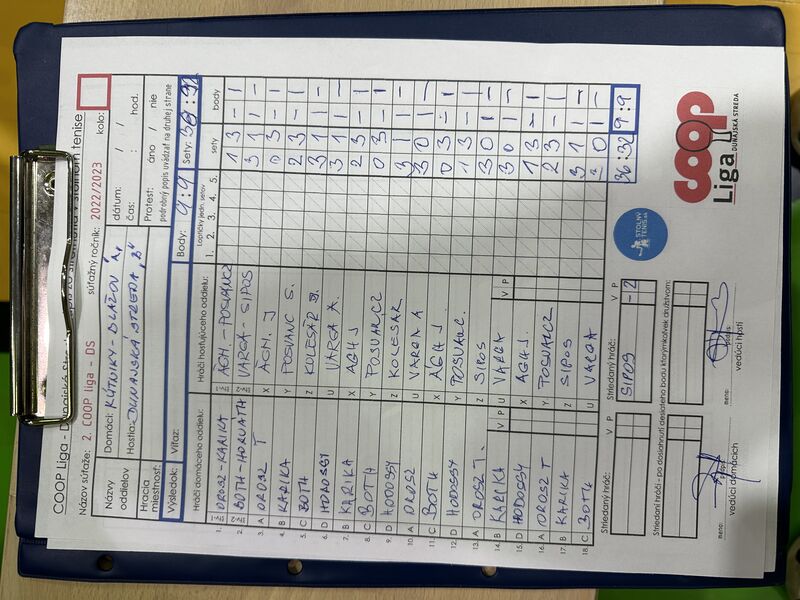 COOP Liga - Dunajská
stolnom tenise
Názov súťaže: 2. COOP liga - DS súťažný ročník: 2022/2023 kolo:
Názvy oddielov
Domáci: KÚTNIKY - BLAŽOV "A"
Hostia: DUNAJSKÁ STREDA "B"
dátum: / / hod.
čas: :
Hracia miestnosť:
Protest: áno / nie
podrobný popis uvádzať na druhej strane
Výsledok: Víťaz: Body: 9:9 Sety:
Hráči domáceho oddielu: Hráči hosťujúceho oddielu: Loptičky jedn. setov sety body
1. 2. 3. 4. 5.
1. OROSZ - KARIKA ÁGH. - POSVANCZ 1 3 - 1
2. BOTH - HORVATH VARGA - SIPOS 3 1 1 -
3. A OROSZ T X ÁGH. J 3 1 1 -
4. B KARIKA Y POSVANC S. 0 3 - 1
5. C BOTH Z KOLESÁR 2 3 - 1
6. D HODOSSY U VARGA A. 3 1 1 -
7. B KARIKA X ÁGH J 3 1 1 -
8. C BOTH Y POSVANCZ 2 3 - 1
9. D HODOSSY Z KOLESAR 0 3 - 1
10. A OROSZ U VARGA A 3 1 1 -
11. C BOTH X ÁGH J. 3 0 1 -
12. D HODOSSY Y POSVANC. 0 3 - 1
13. A OROSZ T. Z SIPOS 1 3 - 1
14. B KARIKA V P U VARGA V P 3 0 1 -
15. D HODOSSY X ÁGH J. 3 0 1 -
16. A OROSZ T Y POSVANCZ 1 3 - 1
17. B KARIKA Z SIPOS 2 3 - 1
18. C BOTH U VARGA 3 1 1 -
Striedaný hráč: V P Striedaný hráč: V P
SIPOS - 2
36:32 9:9
Striedaní hráči - po dosiahnutí desiateho bodu ktorýmkoľvek družstvom:
STOLNÝ TENIS.sk
coop
Liga DUNAJSKÁ STREDA
meno: podpis
vedúci domácich
meno: podpis
vedúci hostí